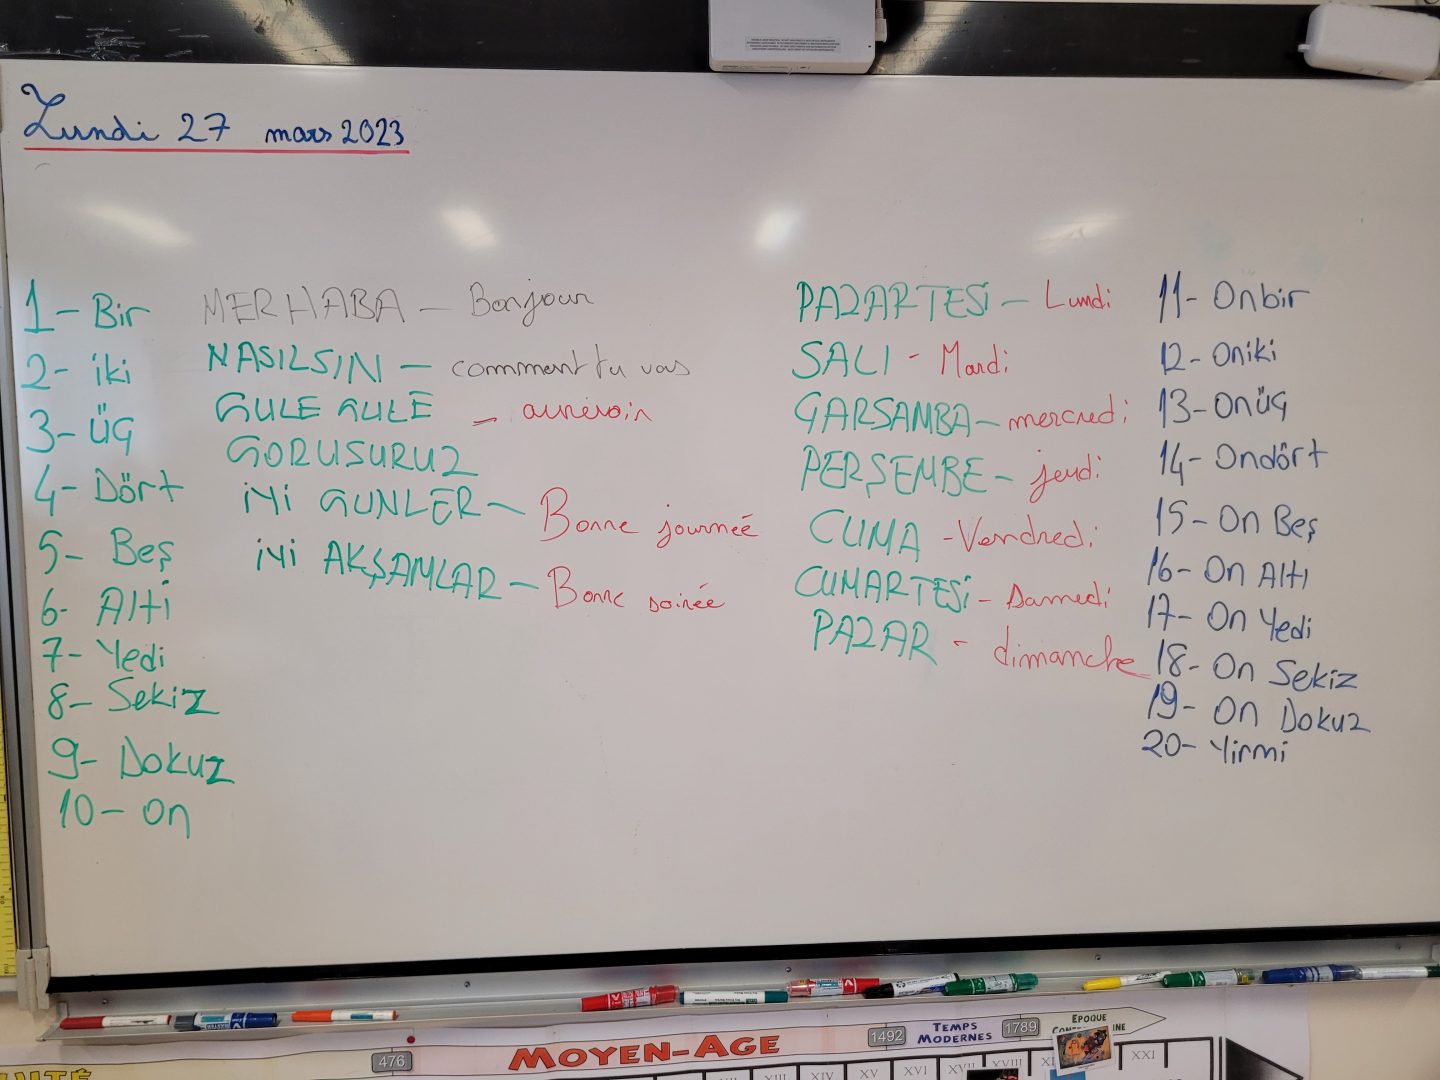 Lundi 27 mars 2023
1- Bir
2- iki
3- üç
4- Dört
5- Beş
6- Altı
7- Yedi
8- Sekiz
9- Dokuz
10- on
MERHABA - Bonjour
NASILSIN - comment tu vas
GULE GULE - aurevoir
GORUSURUZ
iYi GUNLER - Bonne journeé
iYi AKŞAMLAR - Bonne soirée
PAZARTESi - Lundi
SALI - Mardi
ÇARSAMBA - mercredi
PERŞEMBE - jeudi
CUMA - Vendredi
CUMARTESi - Samedi
PAZAR - dimanche
11- Onbir
12- Oniki
13- Onüç
14- Ondört
15- On Beş
16- On Altı
17- On Yedi
18- On Sekiz
19- On Dokuz
20- Yirmi
476
MOYEN-AGE
1492
TEMPS MODERNES
1789
EPOQUE
XIII XIV XV XVI XVII XVIII
XXI